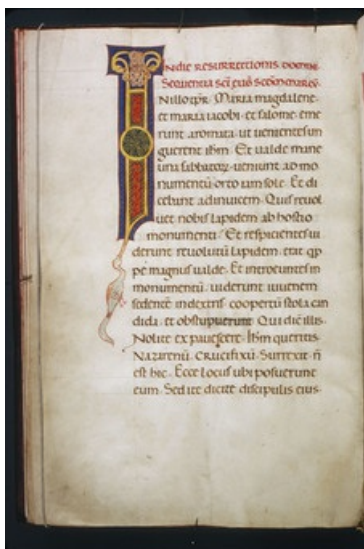 N die resurrectionis domini
Sequentia sci eug scdm marcu
N illo tpr. Maria magdalene
et maria iacobi et salome eme
runt aromata ut uenientes un
guerent ihm. Et ualde mane
una sabbatorum ueniunt ad mo
numentu orto iam sole. Et di
cebant adinuicem. Quis reuol
uet nobis lapidem ab hostio
monumenti. Et respicientes ui
derunt reuolutu lapidem. erat qp
pe magnus ualde. Et introeuntes in
monumentu uiderunt iuuenem
sedente in dextris coopertu stola can
dida et obstupuerunt. Qui dic illis.
Nolite expauescere. Ihm queritis
Nazarenu. Crucifixu. Surrexit. n
est hic. Ecce locus ubi posuerunt
eum. Sed ite dicite discipulis eius.